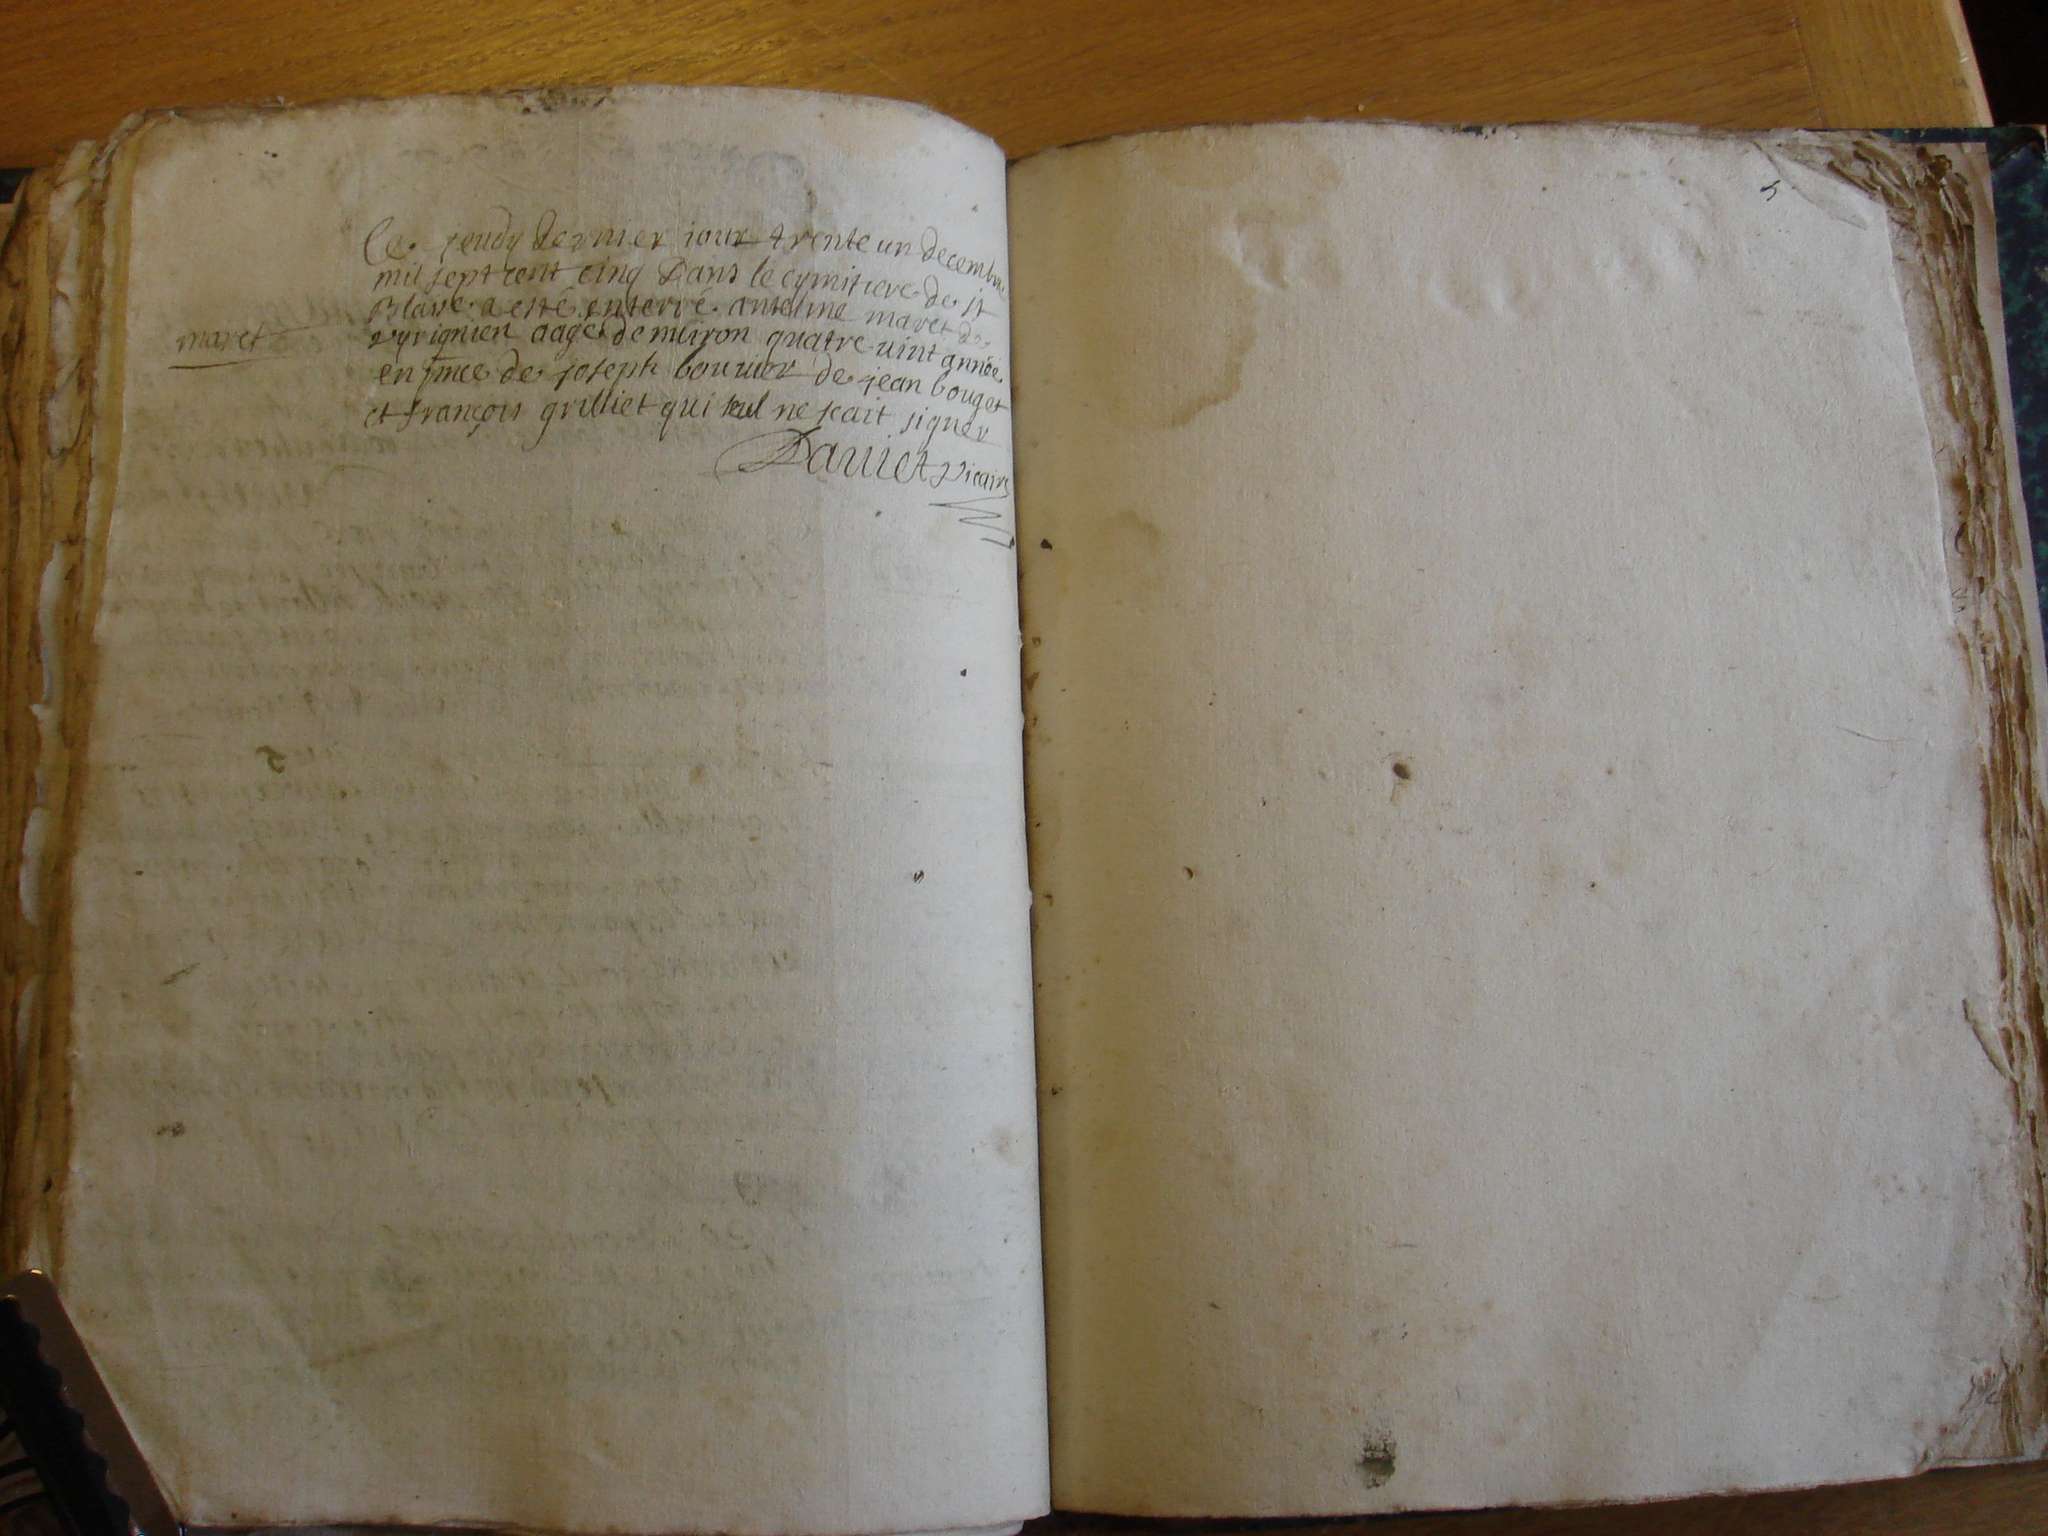 Ce jeudy dernier jour trente un decembre
mil sept cent cinq Dans le cymitiere de st
Blaise a esté enterré antoine maret de
maret
virignien aagé denuiron quatre uint année
en pnce de joseph bouuier de jean bouget
et françois grilliet qui seul ne scait signer
Dauiet vicaire
5